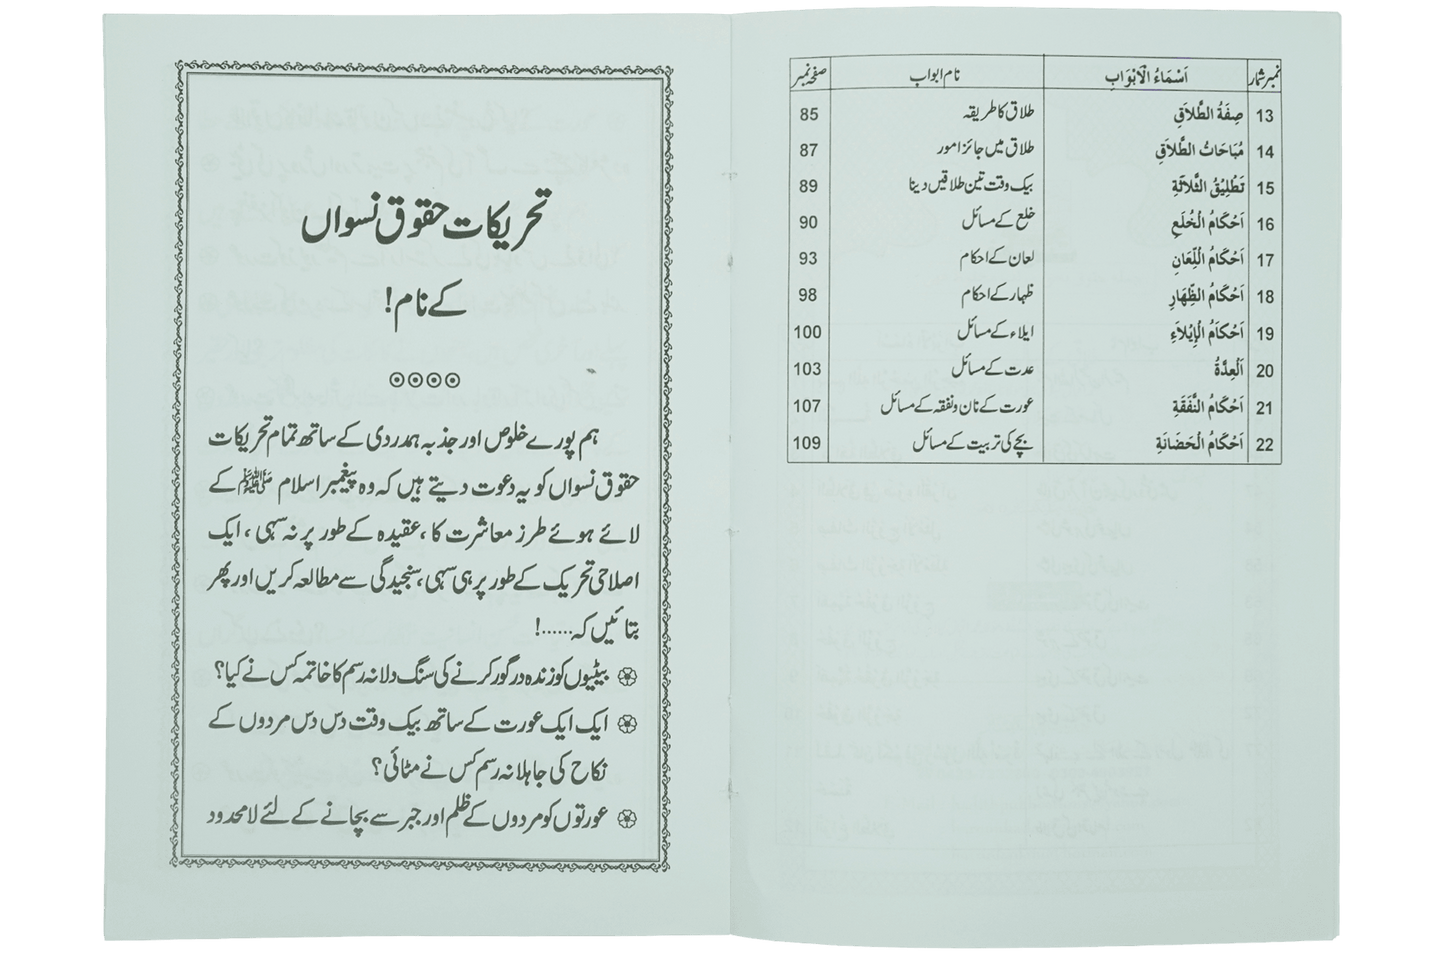 نمبر شمار اَسْمَاءُ الْاَبْوَابِ نام ابواب صفحہ نمبر
13 صِفَةُ الطَّلَاقِ طلاق کا طریقہ 85
14 مُبَاحَاتُ الطَّلَاقِ طلاق میں جائز امور 87
15 تَطْلِيْقُ الثَّلَاثَةِ بیک وقت تین طلاقیں دینا 89
16 اَحْكَامُ الْخُلَعِ خلع کے مسائل 90
17 اَحْكَامُ اللِّعَانِ لعان کے احکام 93
18 اَحْكَامُ الظِّهَارِ ظہار کے احکام 98
19 اَحْكَامُ الْإِيْلَاءِ ایلاء کے مسائل 100
20 اَلْعِدَّةُ عدت کے مسائل 103
21 اَحْكَامُ النَّفَقَةِ عورت کے نان و نفقہ کے مسائل 107
22 اَحْكَامُ الْحَضَانَةِ بچے کی تربیت کے مسائل 109
تحریکات حقوق نسواں
کے نام!
ہم پورے خلوص اور جذبہ ہمدردی کے ساتھ تمام تحریکات
حقوق نسواں کو یہ دعوت دیتے ہیں کہ وہ پیغمبر اسلام ﷺ کے
لائے ہوئے طرز معاشرت کا، عقیدہ کے طور پر نہ سہی، ایک
اصلاحی تحریک کے طور پر ہی سہی، سنجیدگی سے مطالعہ کریں اور پھر
بتائیں کہ......!
بیٹیوں کو زندہ درگور کرنے کی سنگ دلانہ رسم کا خاتمہ کس نے کیا؟
ایک ایک عورت کے ساتھ بیک وقت دس دس مردوں کے
نکاح کی جاہلانہ رسم کس نے مٹائی؟
عورتوں کو مردوں کے ظلم اور جبر سے بچانے کے لئے لامحدود